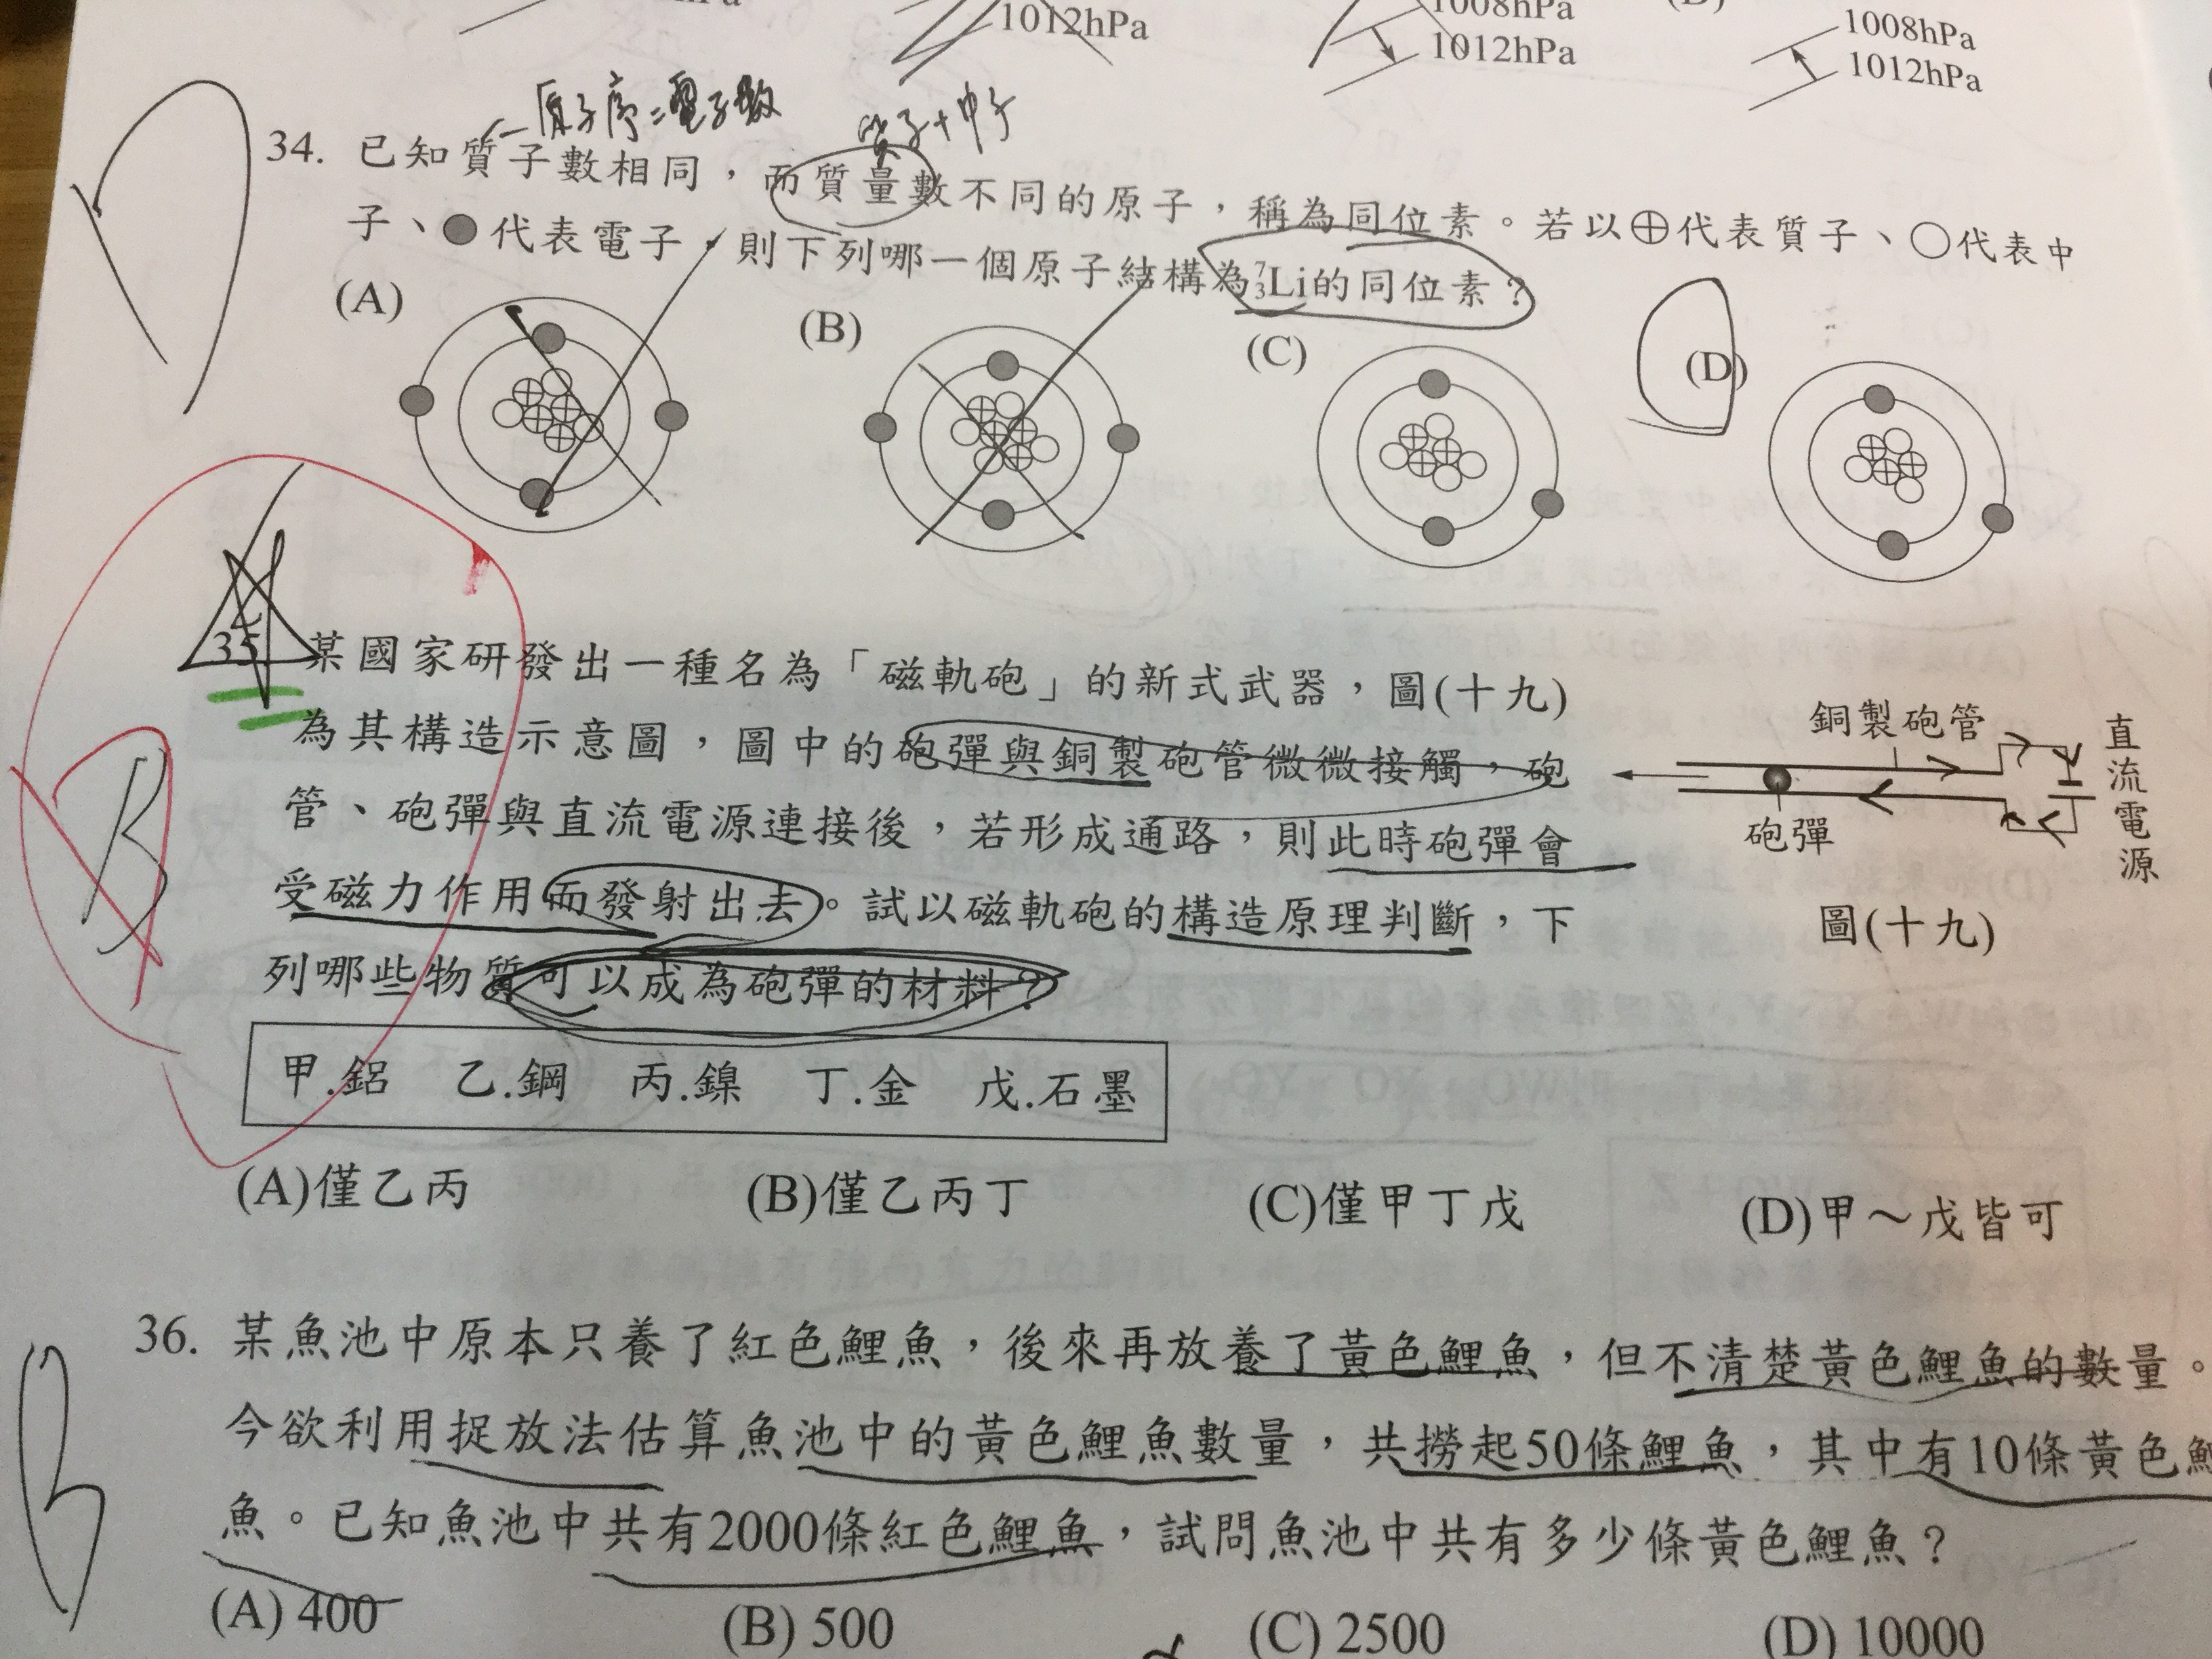 1012hPa
1008hPa
1012hPa
1008hPa
1012hPa
原子序=電子數
質子+中子
34. 已知質子數相同，而質量數不同的原子，稱為同位素。若以⊕代表質子、○代表中
子、●代表電子，則下列哪一個原子結構為⁷₃Li的同位素？
(A)
(B)
(C)
(D)
35. 某國家研發出一種名為「磁軌砲」的新式武器，圖(十九)
為其構造示意圖，圖中的砲彈與銅製砲管微微接觸，砲
管、砲彈與直流電源連接後，若形成通路，則此時砲彈會
受磁力作用而發射出去。試以磁軌砲的構造原理判斷，下
列哪些物質可以成為砲彈的材料？
銅製砲管
砲彈
直流電源
圖(十九)
B
甲.鋁 乙.鋼 丙.鎳 丁.金 戊.石墨
(A)僅乙丙 (B)僅乙丙丁 (C)僅甲丁戊 (D)甲～戊皆可
36. 某魚池中原本只養了紅色鯉魚，後來再放養了黃色鯉魚，但不清楚黃色鯉魚的數量。
今欲利用捉放法估算魚池中的黃色鯉魚數量，共撈起50條鯉魚，其中有10條黃色鯉
魚。已知魚池中共有2000條紅色鯉魚，試問魚池中共有多少條黃色鯉魚？
(A) 400 (B) 500 (C) 2500 (D) 10000